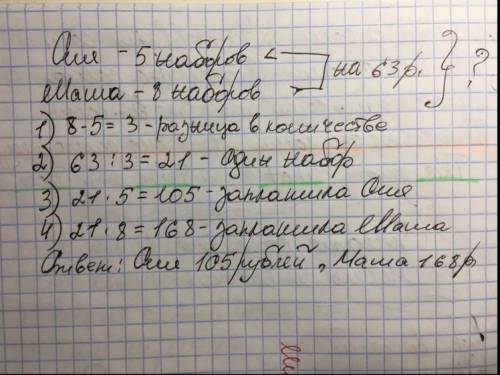 Оля - 5 наборов < на 63р. } ?
Маша - 8 наборов
1) 8-5=3 - разница в количестве
2) 63:3=21 - один набор
3) 21·5=105 - заплатила Оля
4) 21·8=168 - заплатила Маша
Ответ: Оля 105 рублей, Маша 168р.